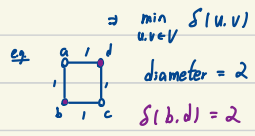 ⇒ min δ(u.v)
u.v∈V
eg
a 1 d
1 1
b 1 c
diameter = 2
δ(b.d) = 2